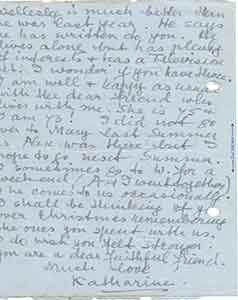 is much better than
he was last year. He says
he has written to you. He
lives alone but has plenty
of interests & has a Television
set. I wonder if you have these.
I am well & happy as usual
with the dear friend who
lives with me. She is 75 &
I am 75! I did not go
over to Mary last Summer
as Alex was there but I
hope to go next Summer
I sometimes go to W. for a
weekend &
he comes to us occasionally.
I shall be thinking of you
over Christmas remembering
the ones you spent with us.
I do wish you felt stronger.
You are a dear faithful friend.
Much love
Katharine.